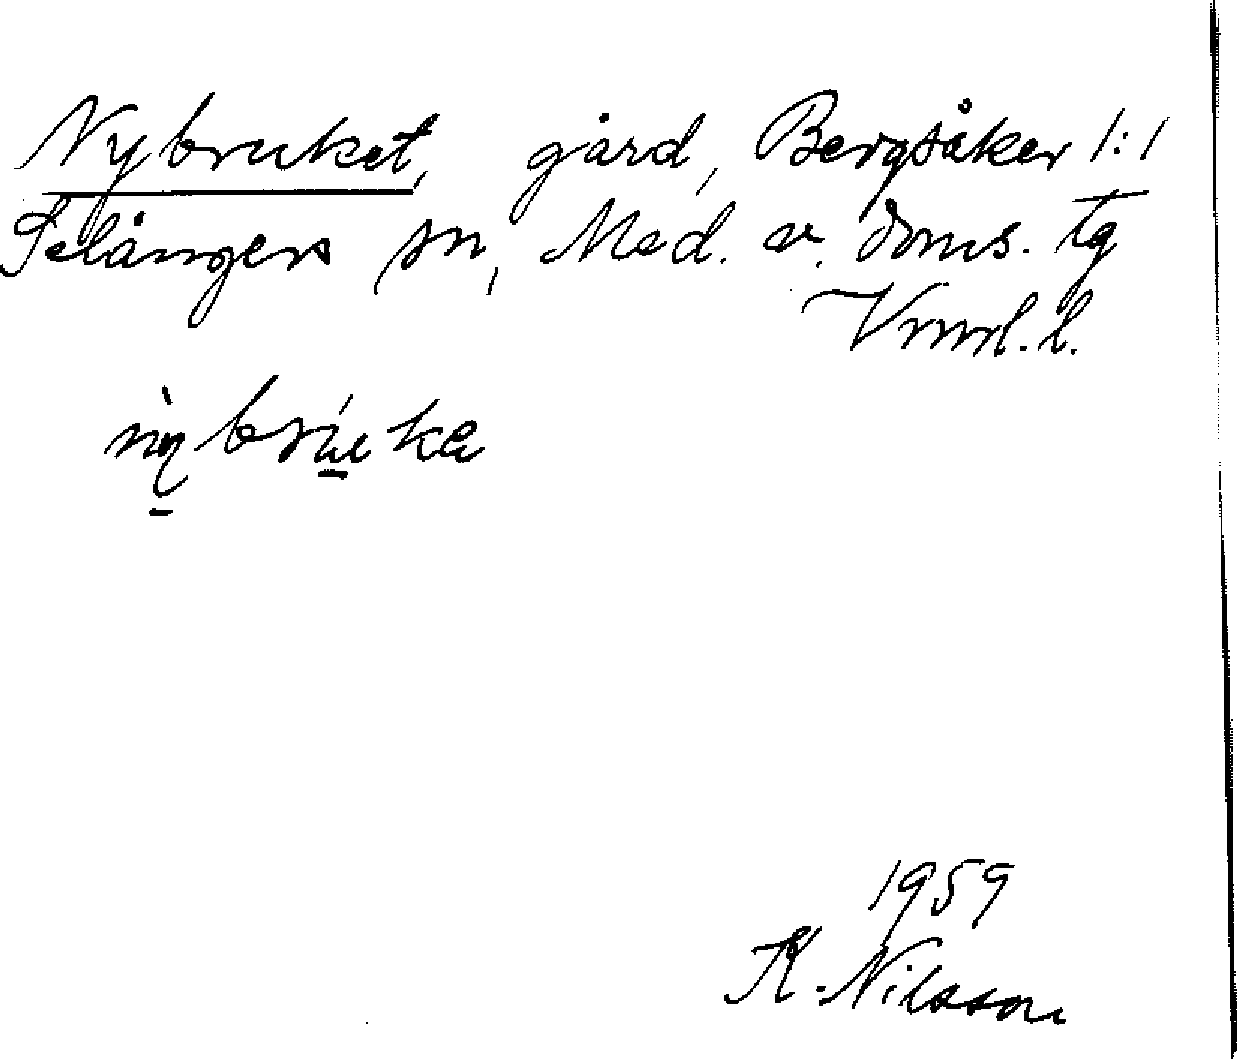 Nybruket, gård, Bergsåker 1:1
Selångers sn, Med. v. doms. tg
Vnrl. l.
nỳbrúka
1959
K. Nilsson